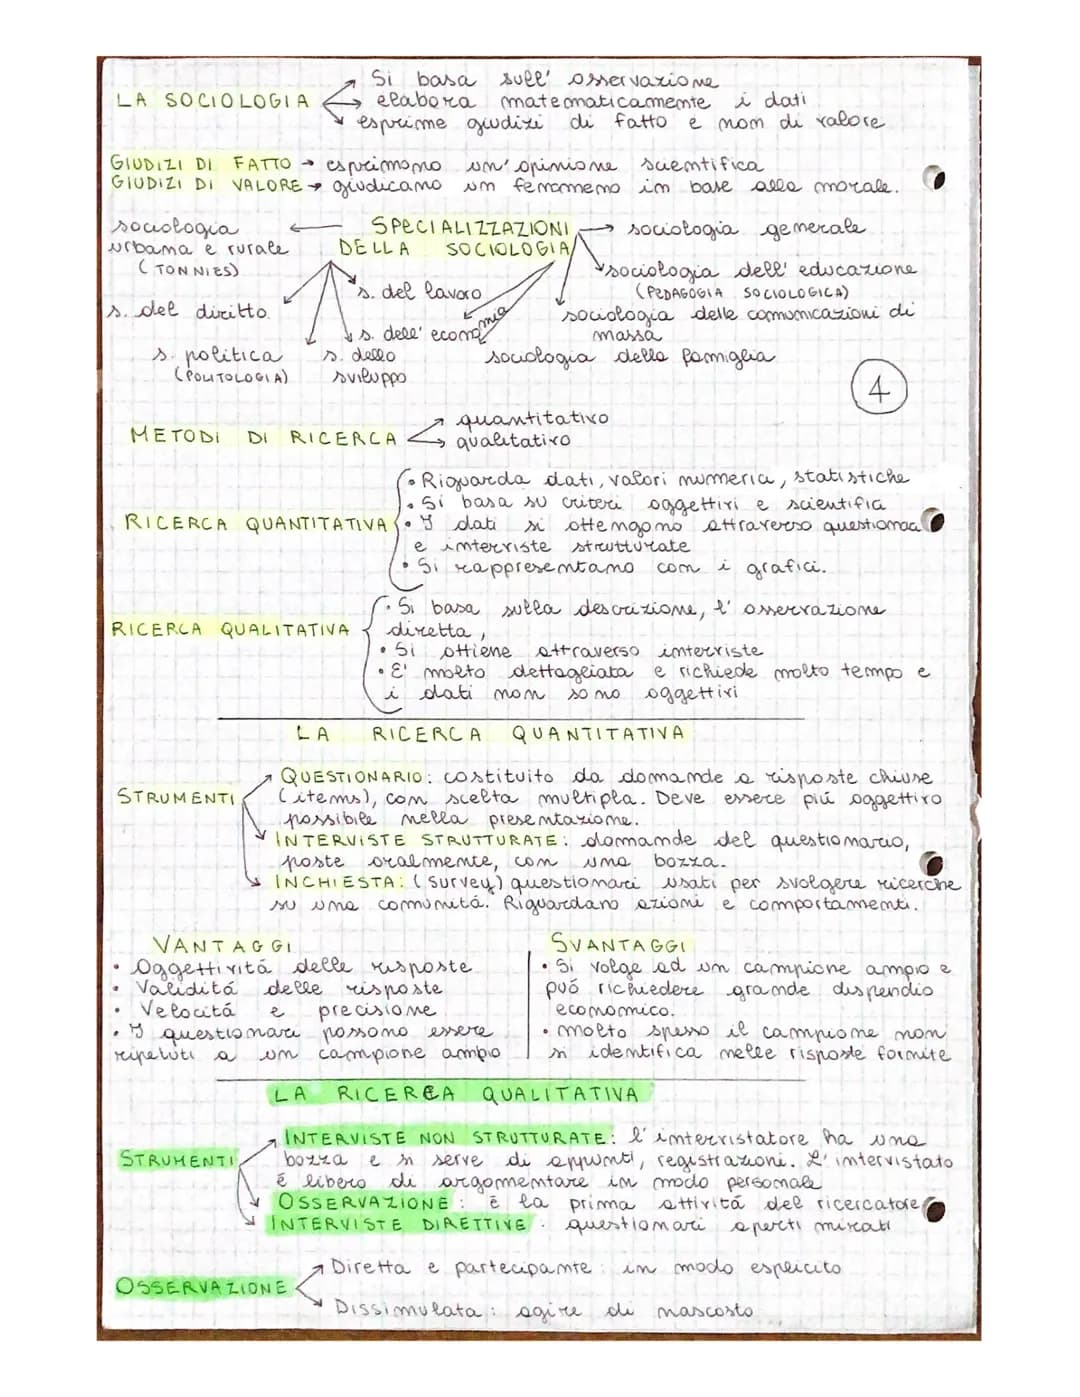 Si basa sull' osservazione
LA SOCIOLOGIA → elabora matematicamente i dati
esprime giudizi di fatto e non di valore
GIUDIZI DI FATTO → esprimono un' opinione scientifica
GIUDIZI DI VALORE → giudicano un fenomeno in base alla morale.
sociologia ← SPECIALIZZAZIONI → sociologia generale
urbana e rurale DELLA SOCIOLOGIA
(TONNIES)
sociologia dell' educazione
(PEDAGOGIA SOCIOLOGICA)
s. del lavoro
s. del diritto
sociologia delle comunicazioni di
massa
s. dell' economia
s. politica
(POLITOLOGIA)
s. dello
sviluppo
sociologia della famiglia
4
quantitativo
METODI DI RICERCA → qualitativo
• Riguarda dati, valori numerici, statistiche
• Si basa su criteri oggettivi e scientifici
RICERCA QUANTITATIVA • I dati si ottengono attraverso
e interviste strutturate
• Si rappresentano con i grafici.
• Si basa sulla descrizione, l' osservazione
RICERCA QUALITATIVA diretta,
• Si ottiene attraverso interviste
• E' molto dettagliata e richiede molto tempo e
i dati non sono oggettivi
LA RICERCA QUANTITATIVA
QUESTIONARIO: costituito da domande a risposte chiuse
STRUMENTI (items), con scelta multipla. Deve essere piú oggettivo
possibile nella presentazione.
INTERVISTE STRUTTURATE: domande del questionario,
poste oralmente, con una bozza.
INCHIESTA: (Survey) questionari usati per svolgere ricerche
su una comunitá. Riguardano azioni e comportamenti.
VANTAGGI
• Oggettivitá delle risposte
• Validitá delle risposte
• Velocitá e precisione
• I questionari possono essere
ripetuti a un campione ampio
SVANTAGGI
• Si volge ad un campione ampio e
puó richiedere grande dispendio
economico.
• molto spesso il campione non
si identifica nelle risposte fornite
LA RICERCA QUALITATIVA
INTERVISTE NON STRUTTURATE: l' intervistatore ha una
STRUMENTI bozza e si serve di appunti, registrazioni. L' intervistato
é libero di argomentare in modo personale
OSSERVAZIONE: é la prima attivitá del ricercatore
INTERVISTE DIRETTIVE: questionari aperti mirati
Diretta e partecipante: in modo esplicito
OSSERVAZIONE
Dissimulata: agire di nascosto